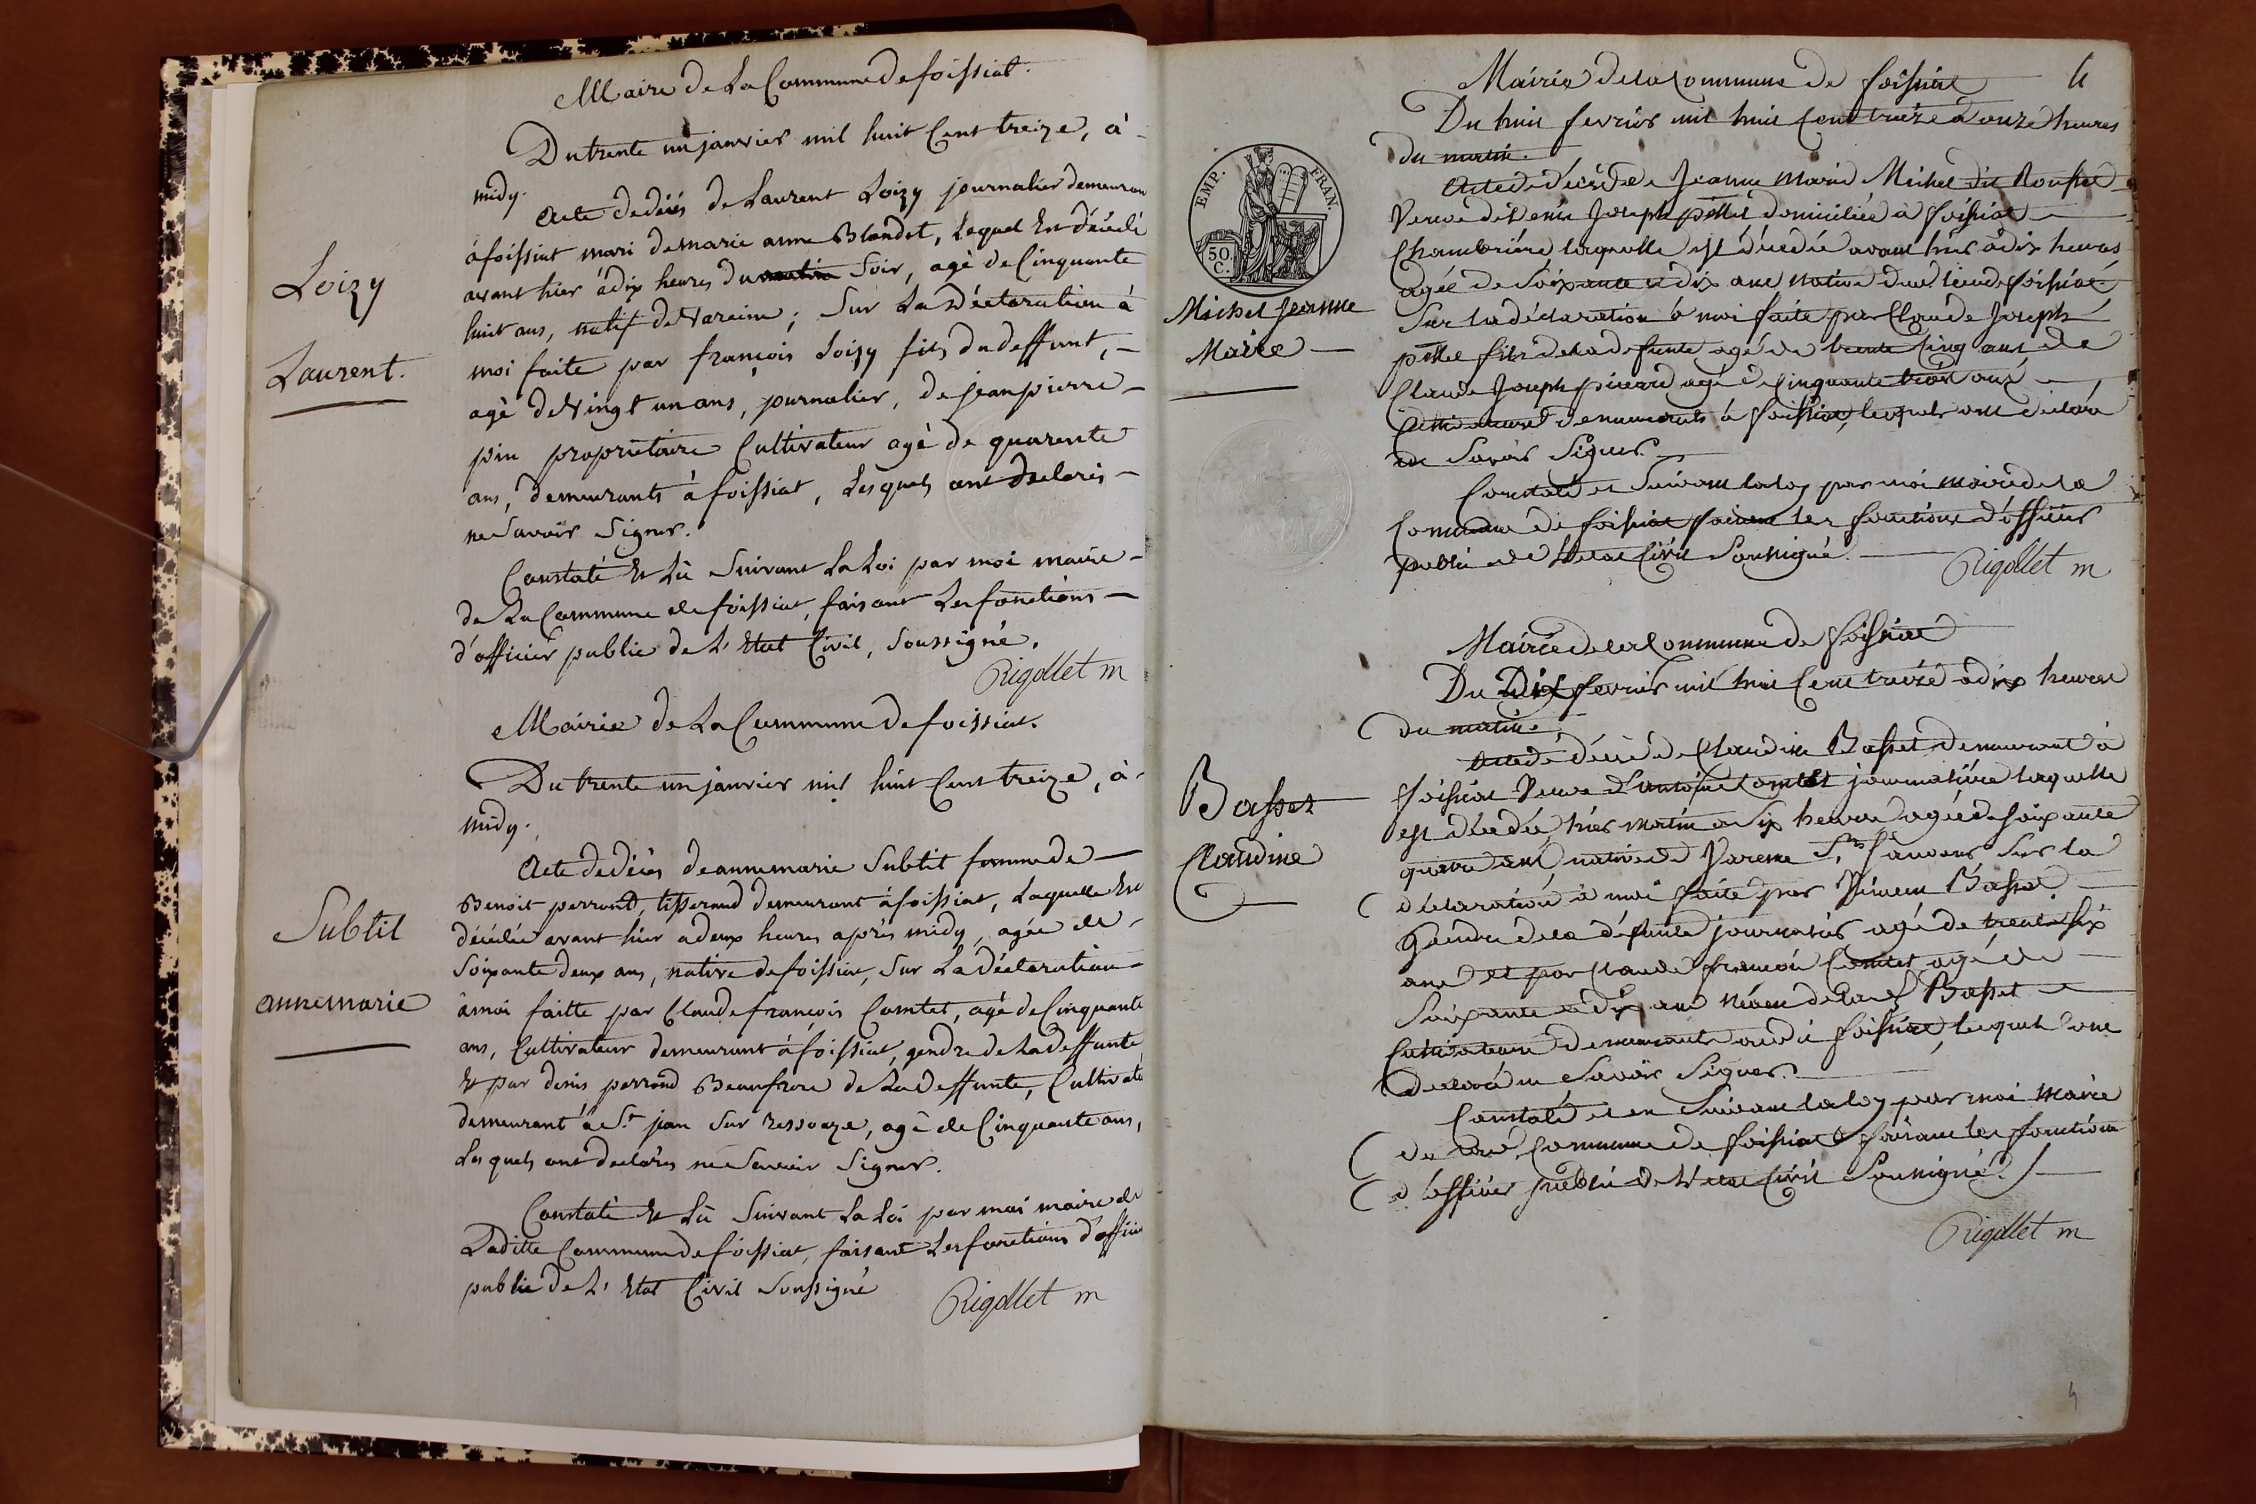 Maire de La Commune de foissiat.
Du trente un janvier mil huit Cent treize, à
midy.
Acte de décès de Laurent Loizy journalier demeuran
à foissiat mari de marie anne Blondet, Lequel Est décédé
avant hier à dix heures du matin Soir, agè de Cinquante
huit ans, natif de Vareine; Sur La Déclaration à
moi faite par françois Loizy fils du deffunt,
agè de Vingt un ans, journalier, de jean pierre
pin propriétaire Cultivateur agè de quarente
ans, demeurants à foissiat, Lesquels ont declarés
ne Savoir Signer.
Constaté Et Lû Suivant La Loi par moi maire
de La Commune de foissiat, faisant Les fonctions
d'officier public de L'Etat Civil, Soussigné.
Rigollet m
Loizy
Laurent.
Mairie de La Commune de foissiat.
Du trente un janvier mil huit Cent treize, à
midy.
Acte de décès de anne marie Subtit femme de
Benoit perrond, tisserand demeurant à foissiat, Laquelle Est
décédée avant hier a deux heures après midy, agée de
Soixante deux ans, native de foissiat, Sur La Déclaration
à moi faitte par Claude françois Comtet, agé de Cinquante
ans, Cultivateur demeurant à foissiat, gendre de La deffunte
Et par denis perrond Beaufrere de La Deffunte, Cultivate
demeurant à St jean Sur Ressouze, agè de Cinquante ans,
Lesquels ont declarés ne Savoir Signer.
Constaté Et Lû Suivant La Loi par moi maire de
Laditte Commune de foissiat, faisant Les fonctions d'offici
public de L'Etat Civil Soussigné
Rigollet m
Subtit
annemarie
4
Mairie de la Commune de foissiat
Du huit fevrier mil huit Cent treize à onze heures
du matin.
Acte de décès de Jeanne Marie Michel dit Rousset
Veuve de Denis Joseph pittet domiciliée à foissiat
Chambriére, laquelle est décédée avant hier à dix heures
agée de Soixante et dix ans native du lieu de foissiat
Sur la déclaration à moi faite par Claude Joseph
pittet fils de la defunte agé de trente Cinq ans et de
Claude Joseph pierre agé de Cinquante trois ans
Cultivateurs demeurants à foissiat, lesquels ont déclaré
ne Savoir Signer.
Constaté et Suivant la loy par moi maire de la
Commune de foissiat faisant les fonctions d'officier
public de l'état Civil Soussigné.
Rigollet m
EMP. FRAN.
50.
C.
Michel Jeanne
Marie
Mairie de la Commune de foissiat
Du Dix fevrier mil huit Cent treize à dix heures
du matin.
Acte de décès de Claudine Basset demeurant à
foissiat Veuve d'antoine Comtet journalière laquelle
est décédée hier matin a Six heures agée de soixante
quatre ans, native de Varene St Sauveur Sur la
déclaration à moi faite par Vincent Basset
gendre de la défunte journalier agé de trente Six
ans et par Claude françois Comtet agé de
Soixante et dix ans Néveu de la dt Basset
Cultivateurs demeurants audit foissiat, lesquels ont
declaré ne Savoir Signer.
Constaté et en Suivant la loy par moi Maire
de la dt Commune de foissiat faisant les fonctions
d'officier public de l'état Civil Soussigné.
Rigollet m
Basset
Claudine
4